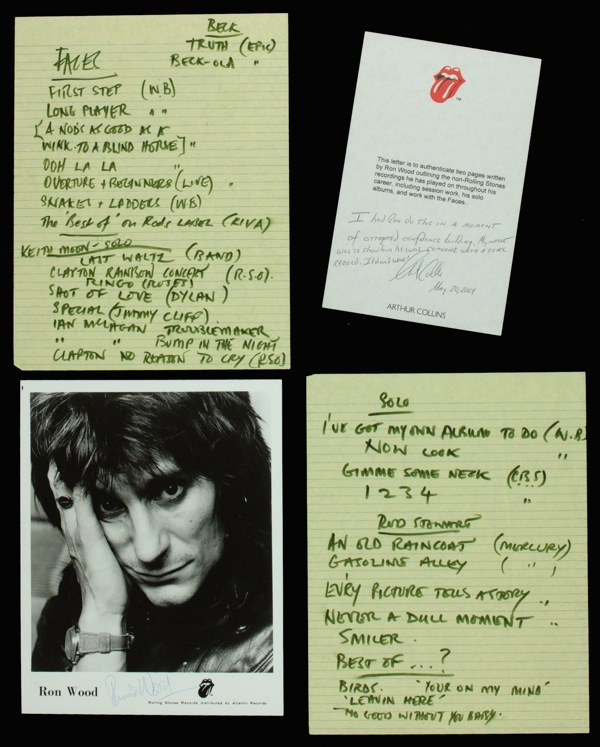 BECK
TRUTH (EPIC)
BECK-OLA "
FACES
FIRST STEP (W.B)
LONG PLAYER " "
[A NODS AS GOOD AS A
WINK. TO A BLIND HORSE] "
OOH LA LA "
OVERTURE + BEGINNERS (LIVE) "
SNAKES + LADDERS (W.B)
THE 'BEST OF' ON RODS LABEL (RIVA)
KEITH MOON - SOLO
LAST WALTZ (BAND)
CLAPTON RAINBOW CONCERT (R.S.O.)
RINGO (ROTET)
SHOT OF LOVE (DYLAN)
SPECIAL (JIMMY CLIFF)
IAN MCLAGAN TROUBLEMAKER
" " BUMP IN THE NIGHT
CLAPTON NO REASON TO CRY (RSO)
TM
This letter is to authenticate two pages written
by Ron Wood outlining the non-Rolling Stones
recordings he has played on throughout his
career, including session work, his solo
albums, and work with the Faces.
I had Ron do this in a moment
of attempted confidence building. My intent
was to show him he was someone with a track
record. It didn't work!
May 20, 2004
ARTHUR COLLINS
Ron Wood
Ronnie Wood
Rolling Stones Records distributed by Atlantic Records
SOLO
I'VE GOT MY OWN ALBUM TO DO (W.B)
NOW LOOK "
GIMME SOME NECK (CBS)
1 2 3 4 "
ROD STEWART
AN OLD RAINCOAT (MERCURY)
GASOLINE ALLEY ( " )
EV'RY PICTURE TELLS A STORY "
NEVER A DULL MOMENT "
SMILER.
BEST OF ...?
BIRDS. "YOUR ON MY MIND"
'LEAVIN HERE'
"NO GOOD WITHOUT YOU BABY.